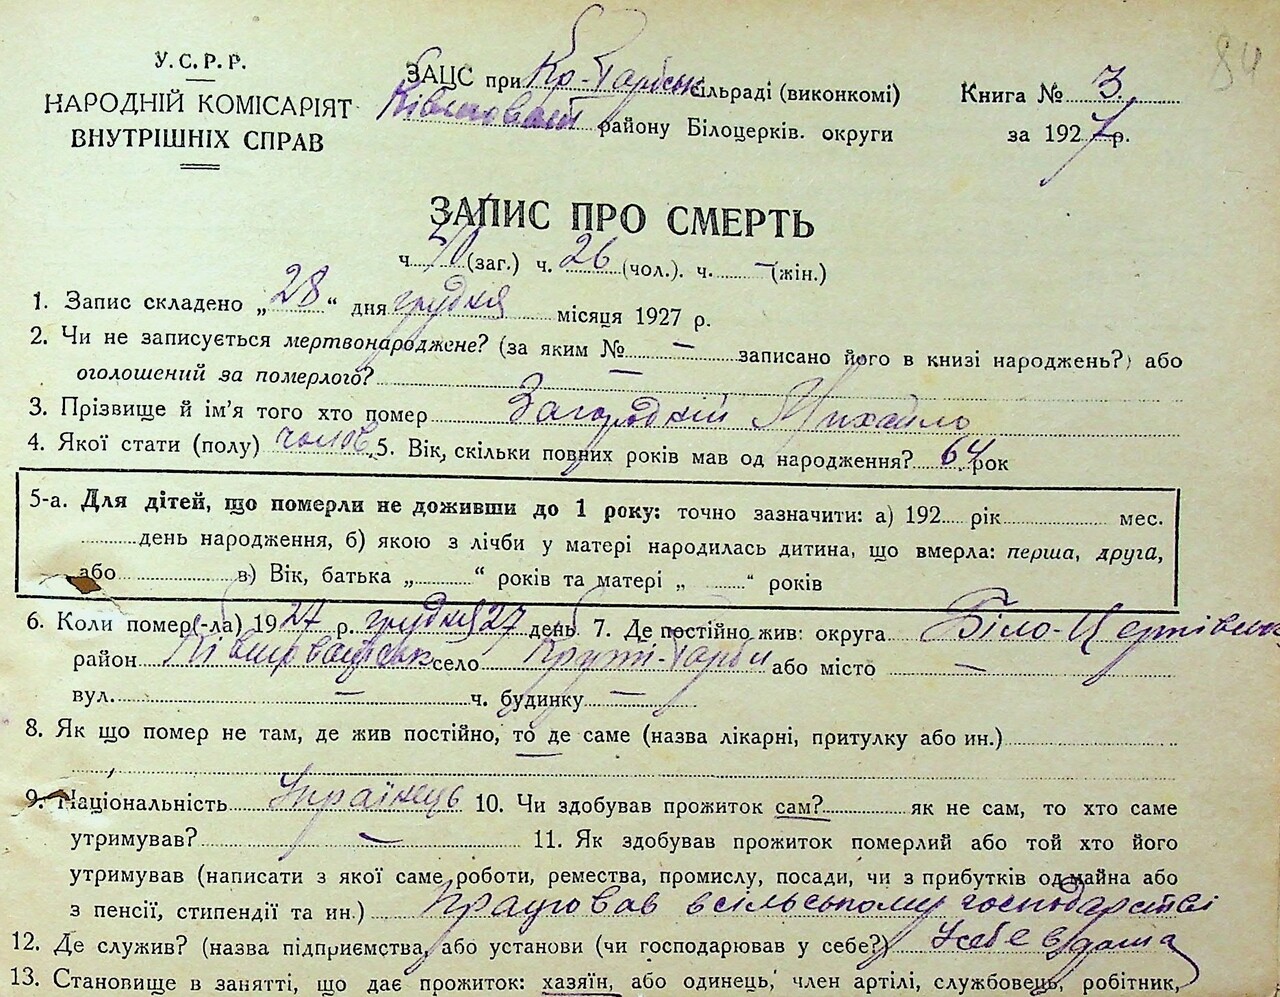 84
У.С.Р.Р.
НАРОДНІЙ КОМІСАРІЯТ
ВНУТРІШНІХ СПРАВ
ЗАЦС при Кр-Гарбськ сільраді (виконкомі)
району Білоцерків. округи
Книга № 3
за 1927 р.
ЗАПИС ПРО СМЕРТЬ
ч 50 (заг.) ч. 26 (чол.). ч. – (жін.)
1. Запис складено „28“ дня грудня місяця 1927 р.
2. Чи не записується мертвонароджене? (за яким № – записано його в книзі народжень?) або
оголошений за померлого? –
3. Прізвище й ім'я того хто помер Загородній Михайло
4. Якої стати (полу) чолов. 5. Вік, скільки повних років мав од народження? 64 рок
5-а. Для дітей, що померли не доживши до 1 року: точно зазначити: а) 192 рік мес.
день народження, б) якою з лічби у матері народилась дитина, що вмерла: перша, друга,
або в) Вік, батька „ “ років та матері „ “ років
6. Коли помер(-ла) 1927 р. грудня 27 день 7. Де постійно жив: округа Біло-Церківськ
район село Круті-Гарби або місто –
вул. – ч. будинку –
8. Як що помер не там, де жив постійно, то де саме (назва лікарні, притулку або ин.)
9. Національність Українець 10. Чи здобував прожиток сам? як не сам, то хто саме
утримував? – 11. Як здобував прожиток померлий або той хто його
утримував (написати з якої саме роботи, ремества, промислу, посади, чи з прибутків од майна або
з пенсії, стипендії та ин.) Працював всільському господарстві
12. Де служив? (назва підприємства, або установи (чи господарював у себе?) Усебе вдома
13. Становище в занятті, що дає прожиток: хазяїн, або одинець, член артілі, службовець, робітник,